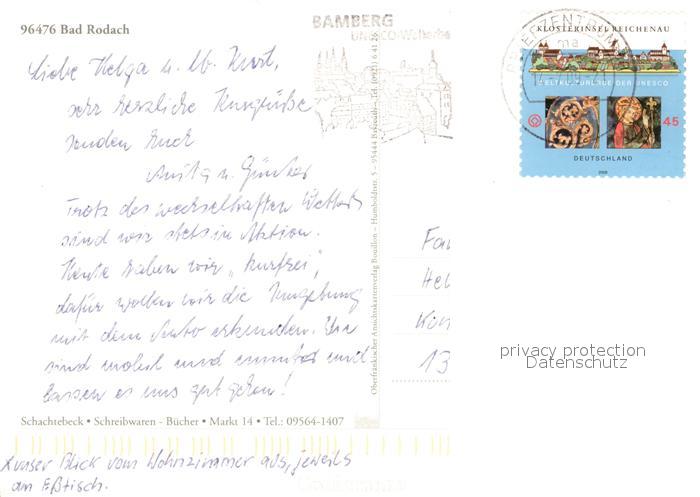 96476 Bad Rodach
BAMBERG
UNESCO-Welterbe
KLOSTERINSEL REICHENAU
WELTKULTURERBE DER UNESCO
45
DEUTSCHLAND
2008
Liebe Helga u. lb. Kurt,
sehr herzliche Kurgrüße
senden Euch
Anita u. Günter
Trotz des wechselhaften Wetters
sind wir stets in Aktion.
Heute haben wir „kurfrei",
dafür wollen wir die Umgebung
mit dem Auto erkunden. Wir
sind wohl und munter und
lassen es uns gut gehen!
Fa
Hel
13
Oberfränkischer Ansichtskartenverlag Bouillon – Humboldtstr. 5 – 95444 Bayreuth – Tel. (0921) 6 41 26
Schachtebeck • Schreibwaren - Bücher • Markt 14 • Tel.: 09564-1407
x unser Blick vom Wohnzimmer aus, jeweils
am Eßtisch.
privacy protection
Datenschutz